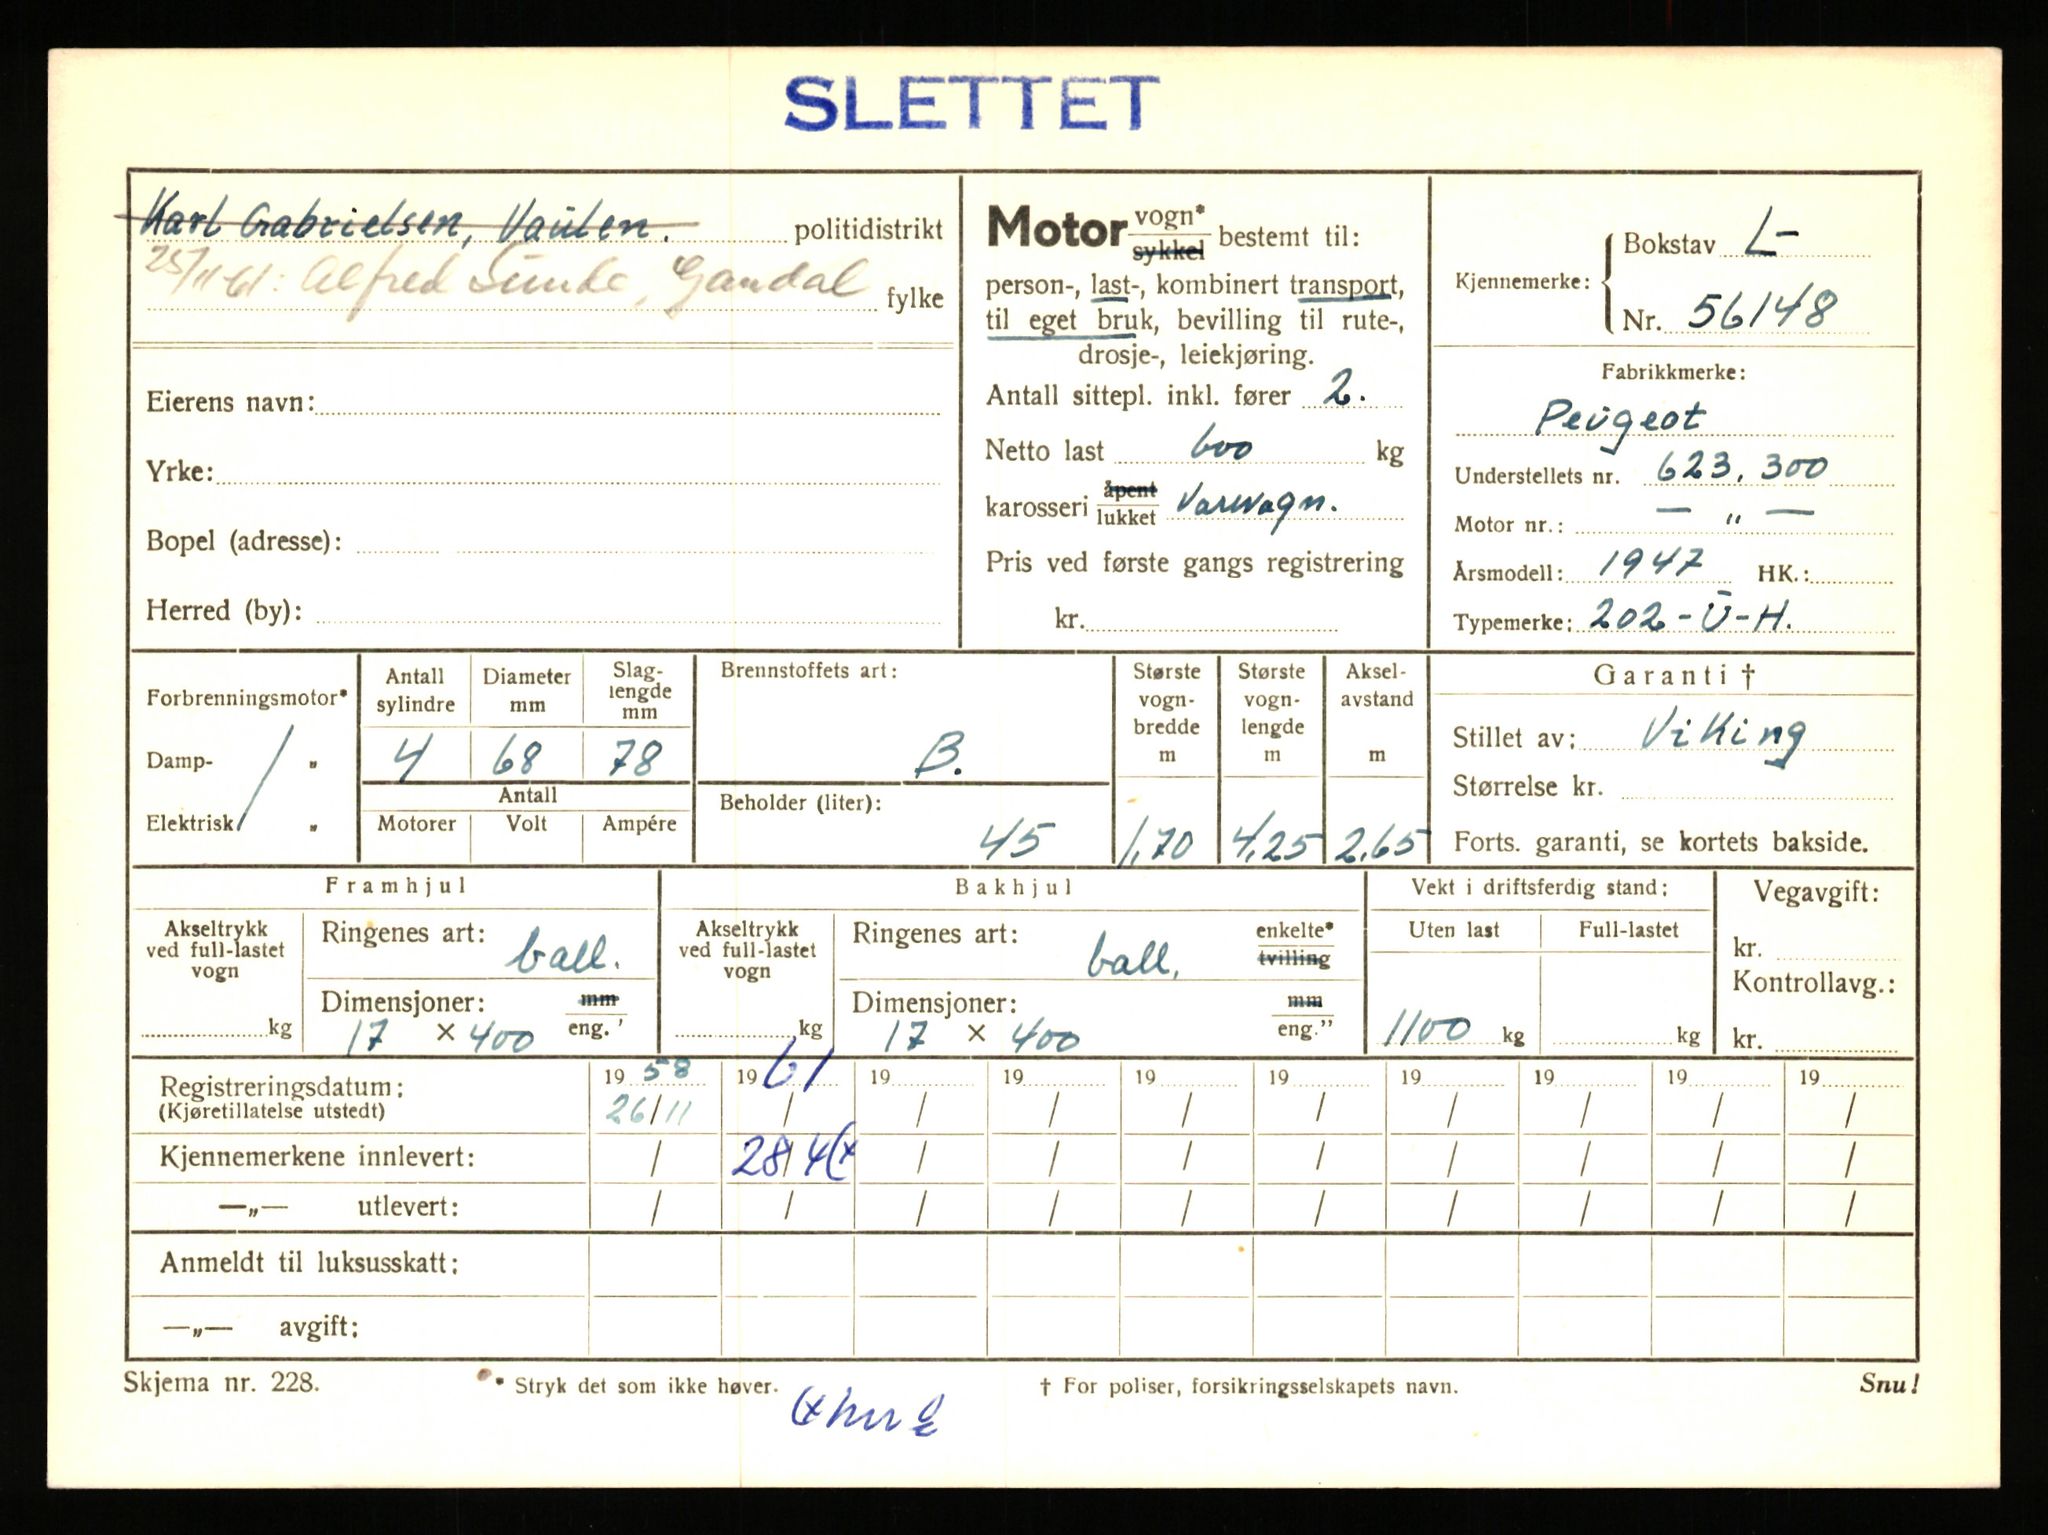 SLETTET
Karl Gabrielsen, Vaulen. politidistrikt
25/11-61: Alfred Sunde, Gandal fylke
Eierens navn:
Yrke:
Bopel (adresse):
Herred (by):
Motor vogn* sykkel bestemt til:
person-, last-, kombinert transport,
til eget bruk, bevilling til rute-,
drosje-, leiekjøring.
Antall sittepl. inkl. fører 2.
Netto last 600 kg
karosseri åpent lukket Varevogn.
Pris ved første gangs registrering
kr.
Kjennemerke: Bokstav L-
Nr. 56148
Fabrikkmerke:
Peugeot
Understellets nr. 623.300
Motor nr.: — „ —
Årsmodell: 1947 HK.:
Typemerke: 202-U-H.
Forbrenningsmotor*
Damp- „
Elektrisk „
Antall sylindre
4
Diameter mm
68
Slag-lengde mm
78
Antall
Motorer Volt Ampére
Brennstoffets art:
B.
Beholder (liter):
45
Største vogn-bredde m
1,70
Største vogn-lengde m
4,25
Aksel-avstand m
2,65
Garanti †
Stillet av: Viking
Størrelse kr.
Forts. garanti, se kortets bakside.
Framhjul
Akseltrykk
ved full-lastet
vogn
kg
Ringenes art: ball.
Dimensjoner: mm
17 × 400 eng.'
Bakhjul
Akseltrykk
ved full-lastet
vogn
kg
Ringenes art: ball. enkelte* tvilling
Dimensjoner: mm
17 × 400 eng."
Vekt i driftsferdig stand:
Uten last Full-lastet
1100 kg kg
Vegavgift:
kr.
Kontrollavg.:
kr.
Registreringsdatum: 19 58 19 61 19 19 19 19 19 19 19 19
(Kjøretillatelse utstedt) 26/11 / / / / / / / / /
Kjennemerkene innlevert: / 28/4 (x / / / / / / / /
—„— utlevert: / / / / / / / / / /
Anmeldt til luksusskatt:
—„— avgift:
Skjema nr. 228. * Stryk det som ikke høver. † For poliser, forsikringsselskapets navn. Snu!